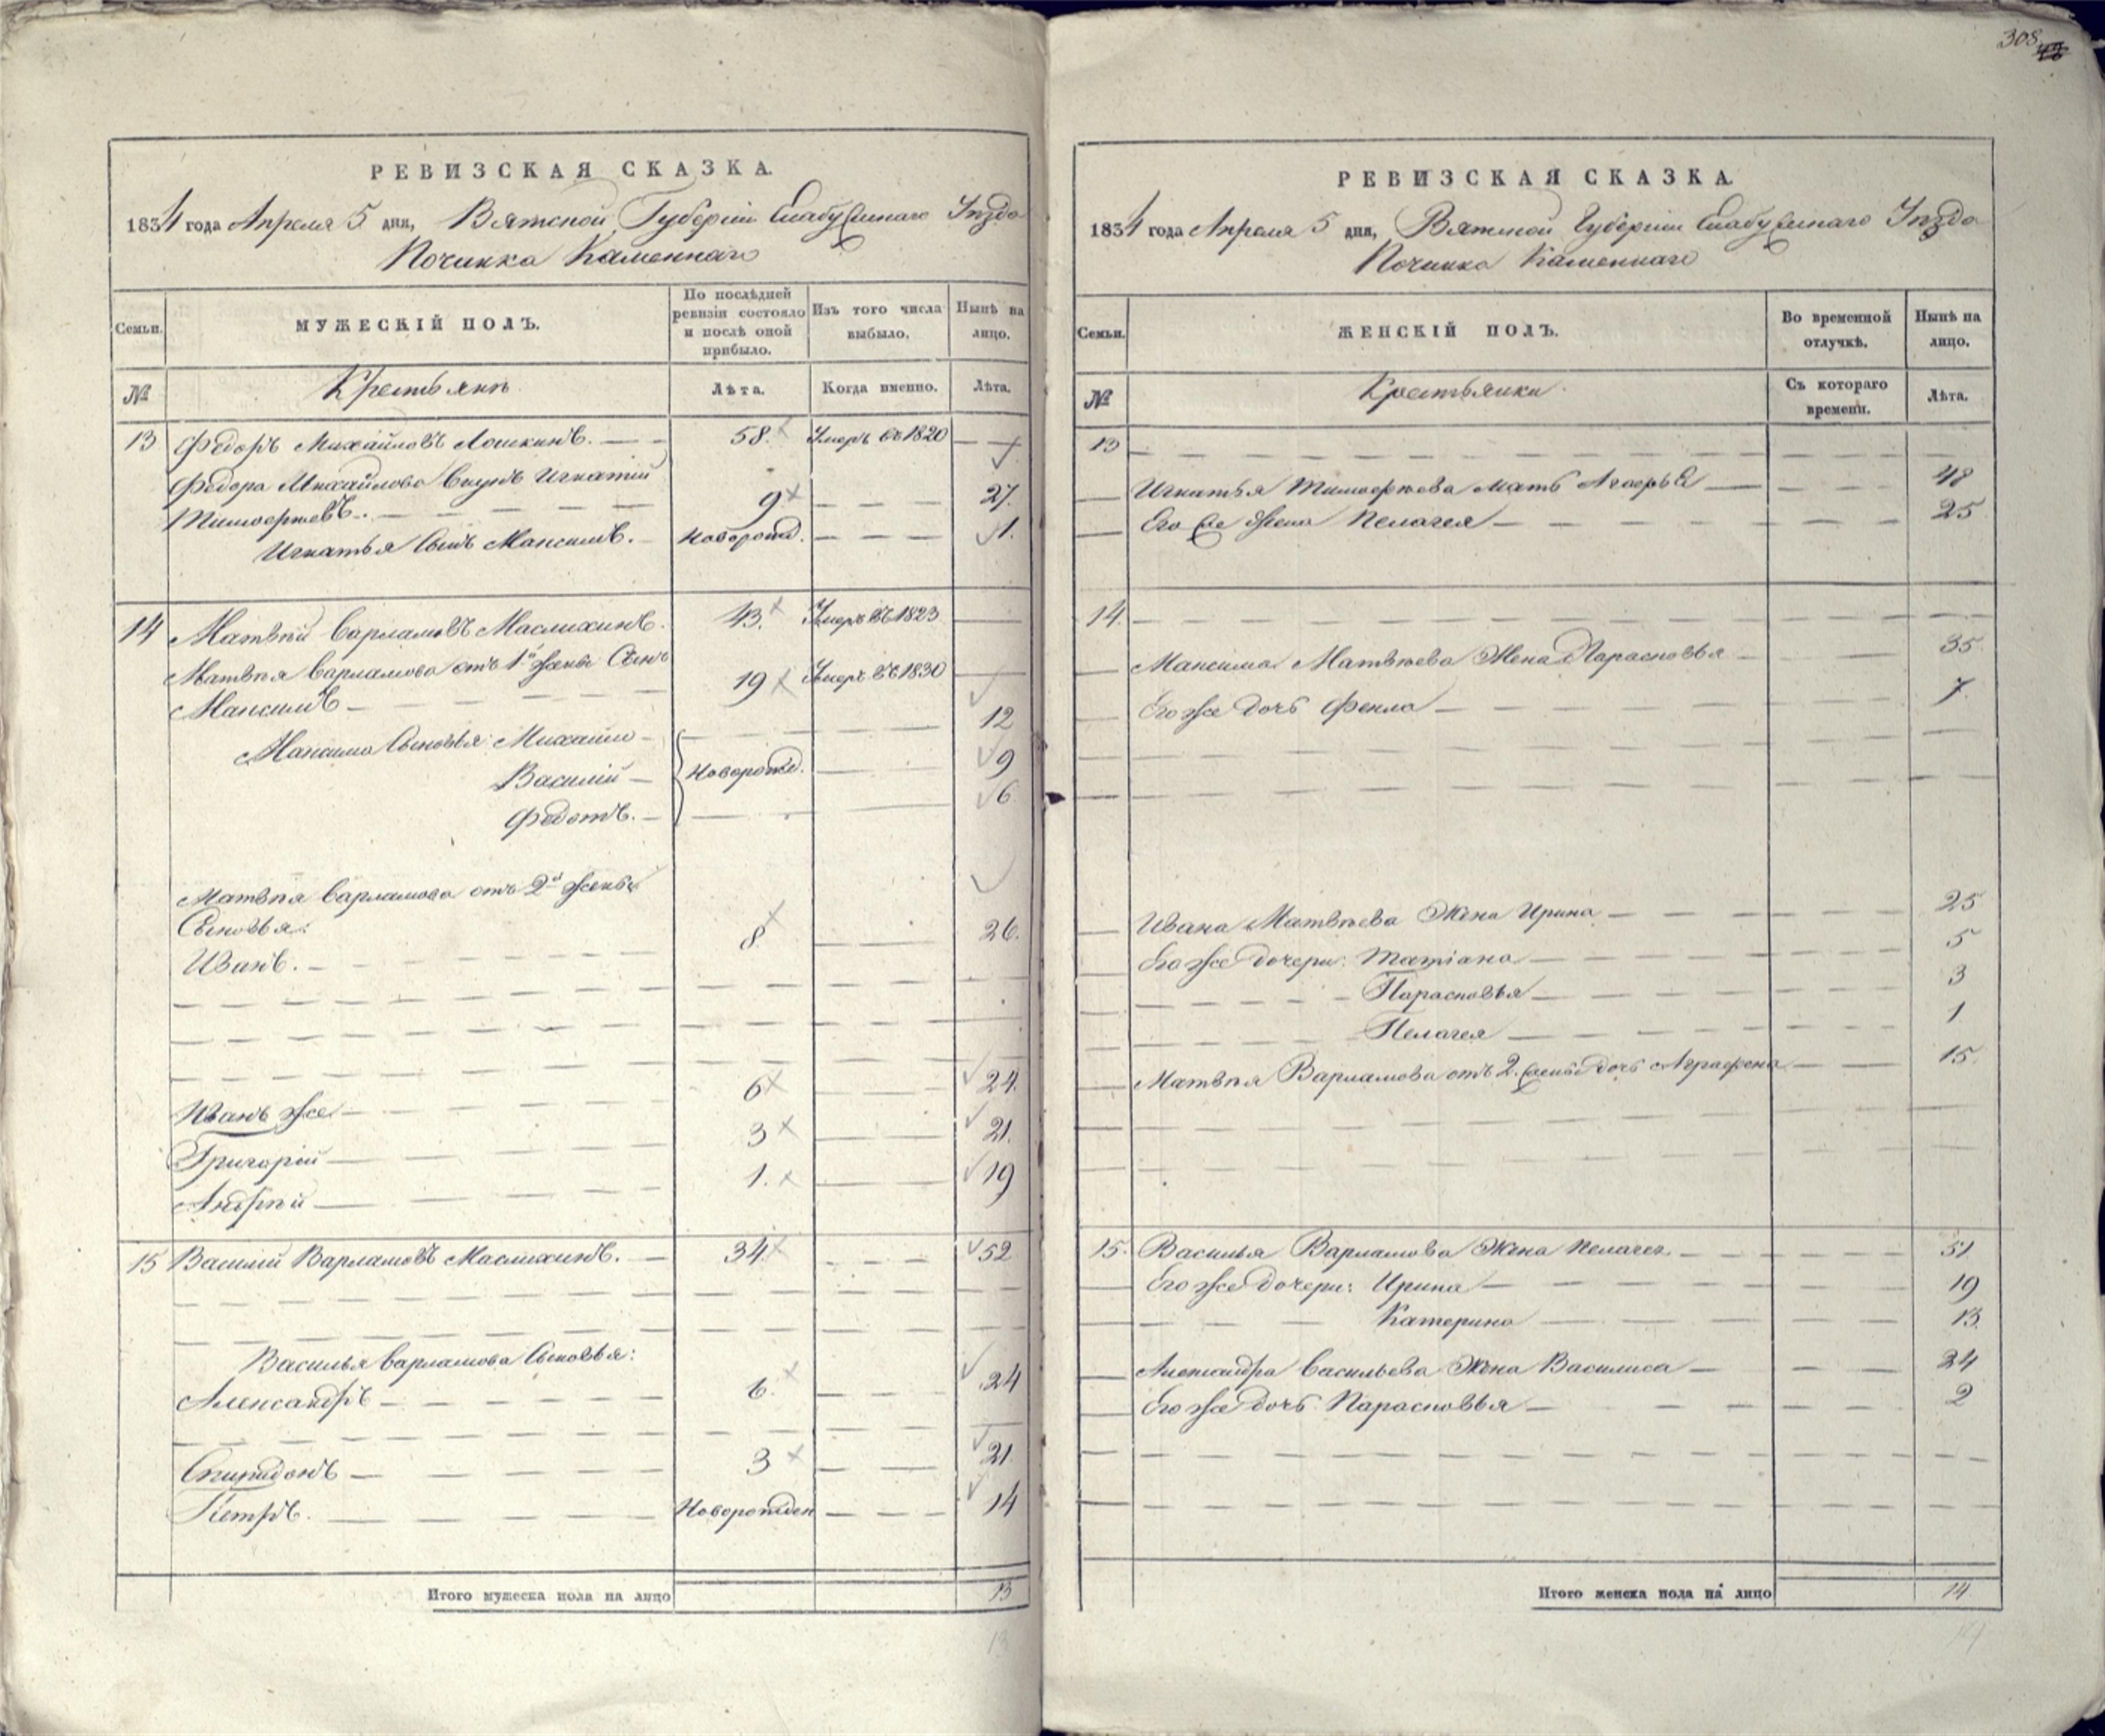 308
РЕВИЗСКАЯ СКАЗКА.
1834 года Апреля 5 дня, Вятской Губерніи Елабужскаго Уѣзда
Починка Каменнаго
Семьи. МУЖЕСКІЙ ПОЛЪ. По послѣдней ревизіи состояло и послѣ оной прибыло. Изъ того числа выбыло. Нынѣ на лицо.
№ Крестьянъ Лѣта. Когда именно. Лѣта.
13 Федоръ Михайловъ Лошкинъ. 58. Умеръ въ 1820
Федора Михайлова Внукъ Игнатій
Тимофѣевъ. 9 27.
Игнатья Сынъ Максимъ. новорожд. 1.
14 Матвѣй Варламовъ Маслихинъ. 43. Умеръ въ 1823
Матвѣя Варламова отъ 1й жены Сынъ
Максимъ 19 Умеръ въ 1830
Максима Сыновья: Михайло 12
Василій новорожд. 9
Федотъ. 6
Матвѣя Варламова отъ 2й жены
Сыновья:
Иванъ. 8 26.
Иванъ же 6 24.
Григорій 3 21.
Андрѣй 1. 19
15 Василій Варламовъ Маслихинъ. 34 52
Василья Варламова Сыновья:
Александръ 6. 24
Спиридонъ 3 21
Петръ. Новорожден 14
Итого мужеска пола на лицо 13
13
РЕВИЗСКАЯ СКАЗКА.
1834 года Апреля 5 дня, Вятской Губерніи Елабужскаго Уѣзда
Починка Каменнаго
Семьи. ЖЕНСКІЙ ПОЛЪ. Во временной отлучкѣ. Нынѣ на лицо.
№ Крестьянки Съ котораго времени. Лѣта.
13
Игнатья Тимофѣева мать 48
Его же жена Пелагея 25
14.
Максима Матвѣева Жена Парасковья 35
Его же дочь Фекла 7
Ивана Матвѣева Жена Ирина 25
Его же дочери: Татіана 5
Парасковья 3
Пелагея 1
Матвѣя Варламова отъ 2. жены дочь Аграфена 15.
15. Василья Варламова Жена Пелагея 51
Его же дочери: Ирина 19
Катерина 13
Александра Васильева Жена Василиса 24
Его же дочь Парасковья 2
Итого женска пола на лицо 14
14